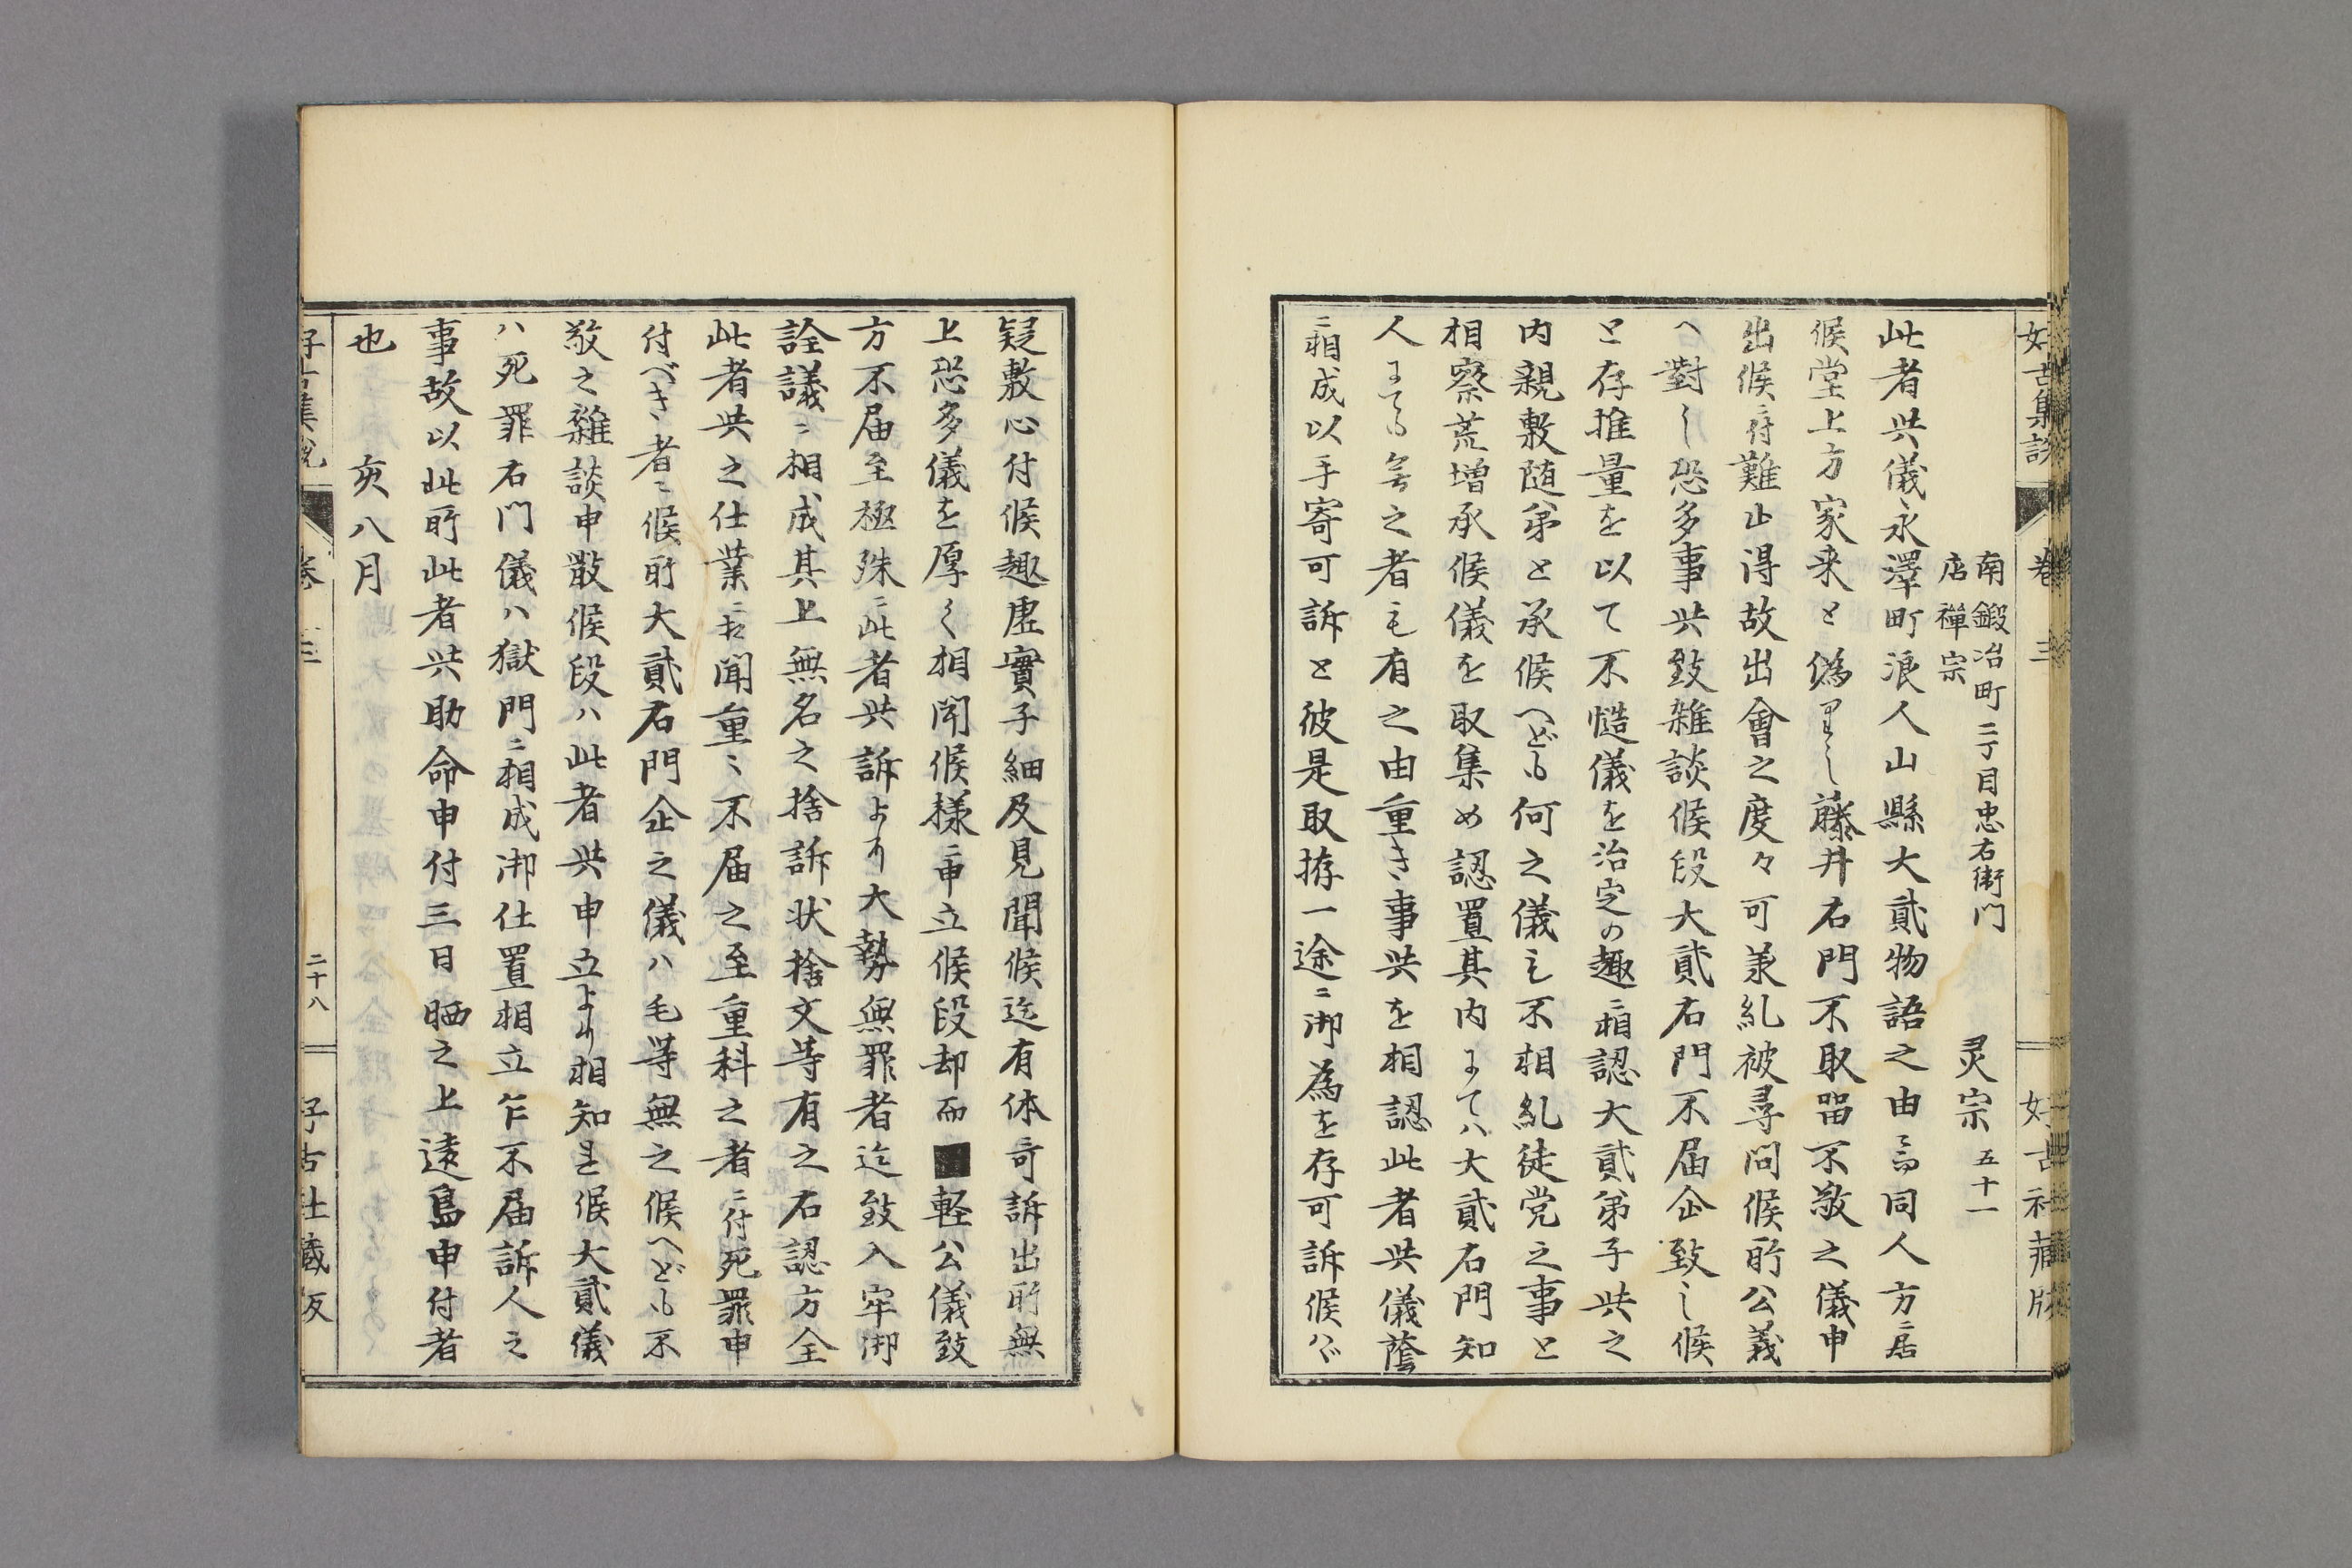 好古集説　卷三　好古社藏版
南鍛冶町二丁目忠右衛門
店禪宗
灵宗 五十一
此者共儀永澤町浪人山縣大貳物語之由ニ而同人方ニ居
候堂上方家来と偽り候藤井右門不取留不敬之儀申
出候ニ付難止得故出會之度々可兼糺被尋問候所公義
へ對し恐多事共致雑談候段大貳右門不届企致し候
と存推量を以て不慥儀を治定の趣ニ相認大貳弟子共之
内親敷随弟と承候へども何之儀も不相糺徒党之事と
相察荒増承候儀を取集め認置其内よてハ大貳右門知
人よても無之者も有之由重き事共を相認此者共儀蔭
ニ相成以手寄可訴と彼是取拵一途ニ御為を存可訴候ハヾ
疑敷心付候趣虚實子細及見聞候迄有体可訴出所無
上恐多儀を厚く相聞候様ニ申立候段却而■軽公儀致
方不届至極殊ニ此者共訴より大勢無罪者迄致入牢御
詮議ニ相成其上無名之捨訴状捨文等有之右認方全
此者共之仕業ニ相聞重々不届之至重科之者ニ付死罪申
付べき者ニ候所大貳右門企之儀ハ毛等無之候へども不
敬之雑談申散候段ハ此者共申立より相知連候大貳儀
ハ死罪右門儀ハ獄門ニ相成御仕置相立乍不届訴人之
事故以此所此者共助命申付三日晒之上遠島申付者
也　亥八月
好古集説　卷三　二十八　好古社藏版